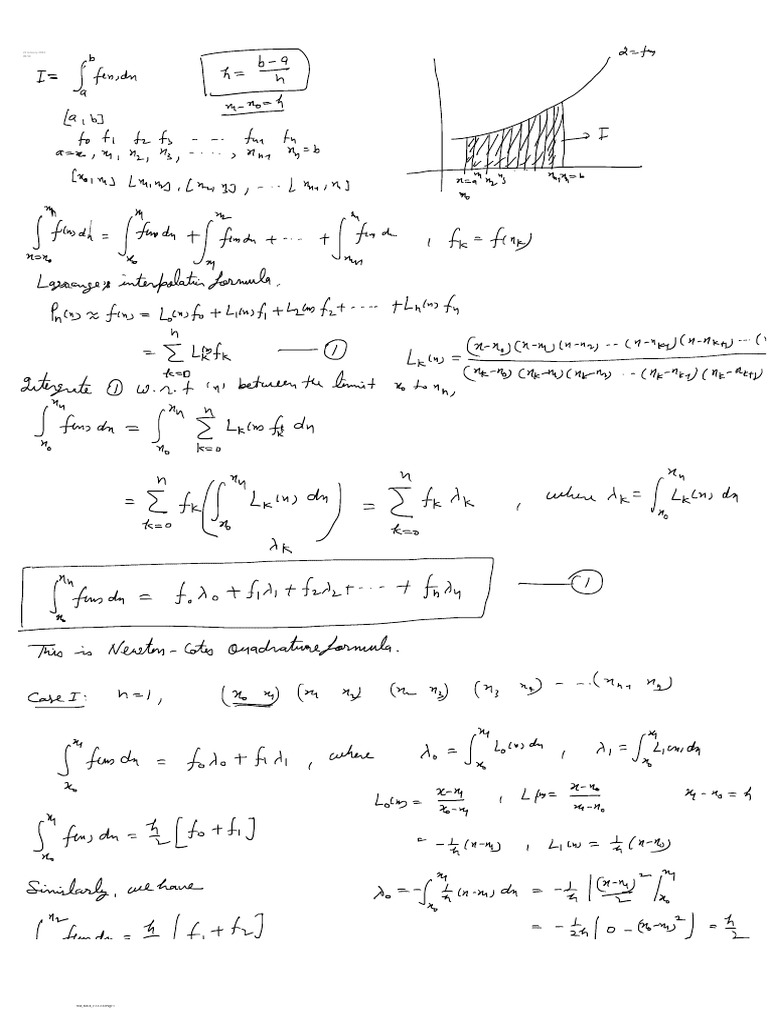 I = ∫_a^b f(x) dx    h = (b-a)/n    y = f(x)
x₁-x₀ = h
[a, b]
f₀ f₁ f₂ f₃ -- -- fₙ₋₁ fₙ
a=x₀, x₁, x₂, x₃, ....., xₙ₋₁ xₙ = b    → I
[x₀, x₁] [x₁, x₂], [x₂, x₃], ... [xₙ₋₁, xₙ]    x₀=a x₁ x₂ x₃    xₙ₋₁ xₙ=b
x₀
∫_{x=x₀}^{xₙ} f(x) dx = ∫_{x₀}^{x₁} f(x) dx + ∫_{x₁}^{x₂} f(x) dx + ... + ∫_{xₙ₋₁}^{xₙ} f(x) dx , fₖ = f(xₖ)
Lagrange's interpolation formula.
Pₙ(x) ≈ f(x) = L₀(x) f₀ + L₁(x) f₁ + L₂(x) f₂ + ---- + Lₙ(x) fₙ
= Σ_{k=0}^{n} Lₖ(x) fₖ —— ①    Lₖ(x) = (x-x₀)(x-x₁)(x-x₂)...(x-xₖ₋₁)(x-xₖ₊₁)...( / (xₖ-x₀)(xₖ-x₁)(xₖ-x₂)...(xₖ-xₖ₋₁)(xₖ-xₖ₊₁)
Intergrate ① w.r.t (x) between the limit x₀ to xₙ,
∫_{x₀}^{xₙ} f(x) dx = ∫_{x₀}^{xₙ} Σ_{k=0}^{n} Lₖ(x) fₖ dx
= Σ_{k=0}^{n} fₖ ( ∫_{x₀}^{xₙ} Lₖ(x) dx ) = Σ_{k=0}^{n} fₖ λₖ , where λₖ = ∫_{x₀}^{xₙ} Lₖ(x) dx
λₖ
∫_{x₀}^{xₙ} f(x) dx = f₀λ₀ + f₁λ₁ + f₂λ₂ + ... + fₙλₙ —— ①
This is Newton-Cotes Quadrature formula.
Case I: n=1, (x₀ x₁) (x₁ x₂) (x₂ x₃) (x₃ x₄) - ... (xₙ₋₁ xₙ)
∫_{x₀}^{x₁} f(x) dx = f₀λ₀ + f₁λ₁ , where λ₀ = ∫_{x₀}^{x₁} L₀(x) dx , λ₁ = ∫_{x₀}^{x₁} L₁(x) dx
L₀(x) = (x-x₁)/(x₀-x₁) , L₁(x) = (x-x₀)/(x₁-x₀)    x₁-x₀ = h
∫_{x₀}^{x₁} f(x) dx = h/2 [f₀ + f₁]    = -1/h (x-x₁) , L₁(x) = 1/h (x-x₀)
Similarly, we have    λ₀ = -∫_{x₀}^{x₁} 1/h (x-x₁) dx = -1/h | (x-x₁)²/2 |_{x₀}^{x₁}
∫^{x₂} f(x) dx = h/ [f₁ + f₂]    = -1/2h [0 - (x₀-x₁)²] = h/2